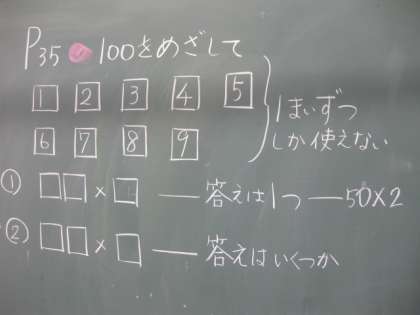 P35 100をめざして
1 2 3 4 5
6 7 8 9
1まいずつ
しか使えない
① □□×□ ― 答えは1つ ― 50×2
② □□×□ ― 答えはいくつか